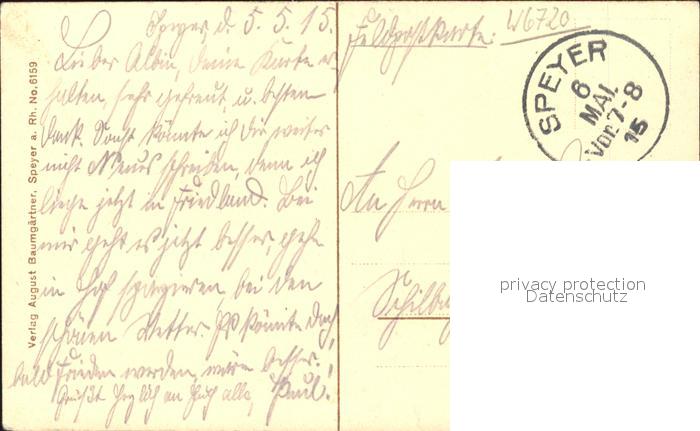 Speyer, d. 5.5.15.
Lieber Albin, deine Karte er-
halten, sehr gefreut u. besten
Dank. Sonst könnte ich Dir weiter
nicht Neues schreiben, denn ich
liege jetzt in Friedland. Bei
mir geht es jetzt besser, gehe
in Hof spazieren bei den
schönen Wetter. Es könnte doch
bald Frieden werden, wäre besser.
Grüßt herzlich an Euch alle, Paul!
Feldpostkarte:
W6720
SPEYER
6
MAI.
Vor.7-8
15
An Herrn
Verlag August Baumgärtner, Speyer a. Rh. No. 6159
privacy protection
Datenschutz